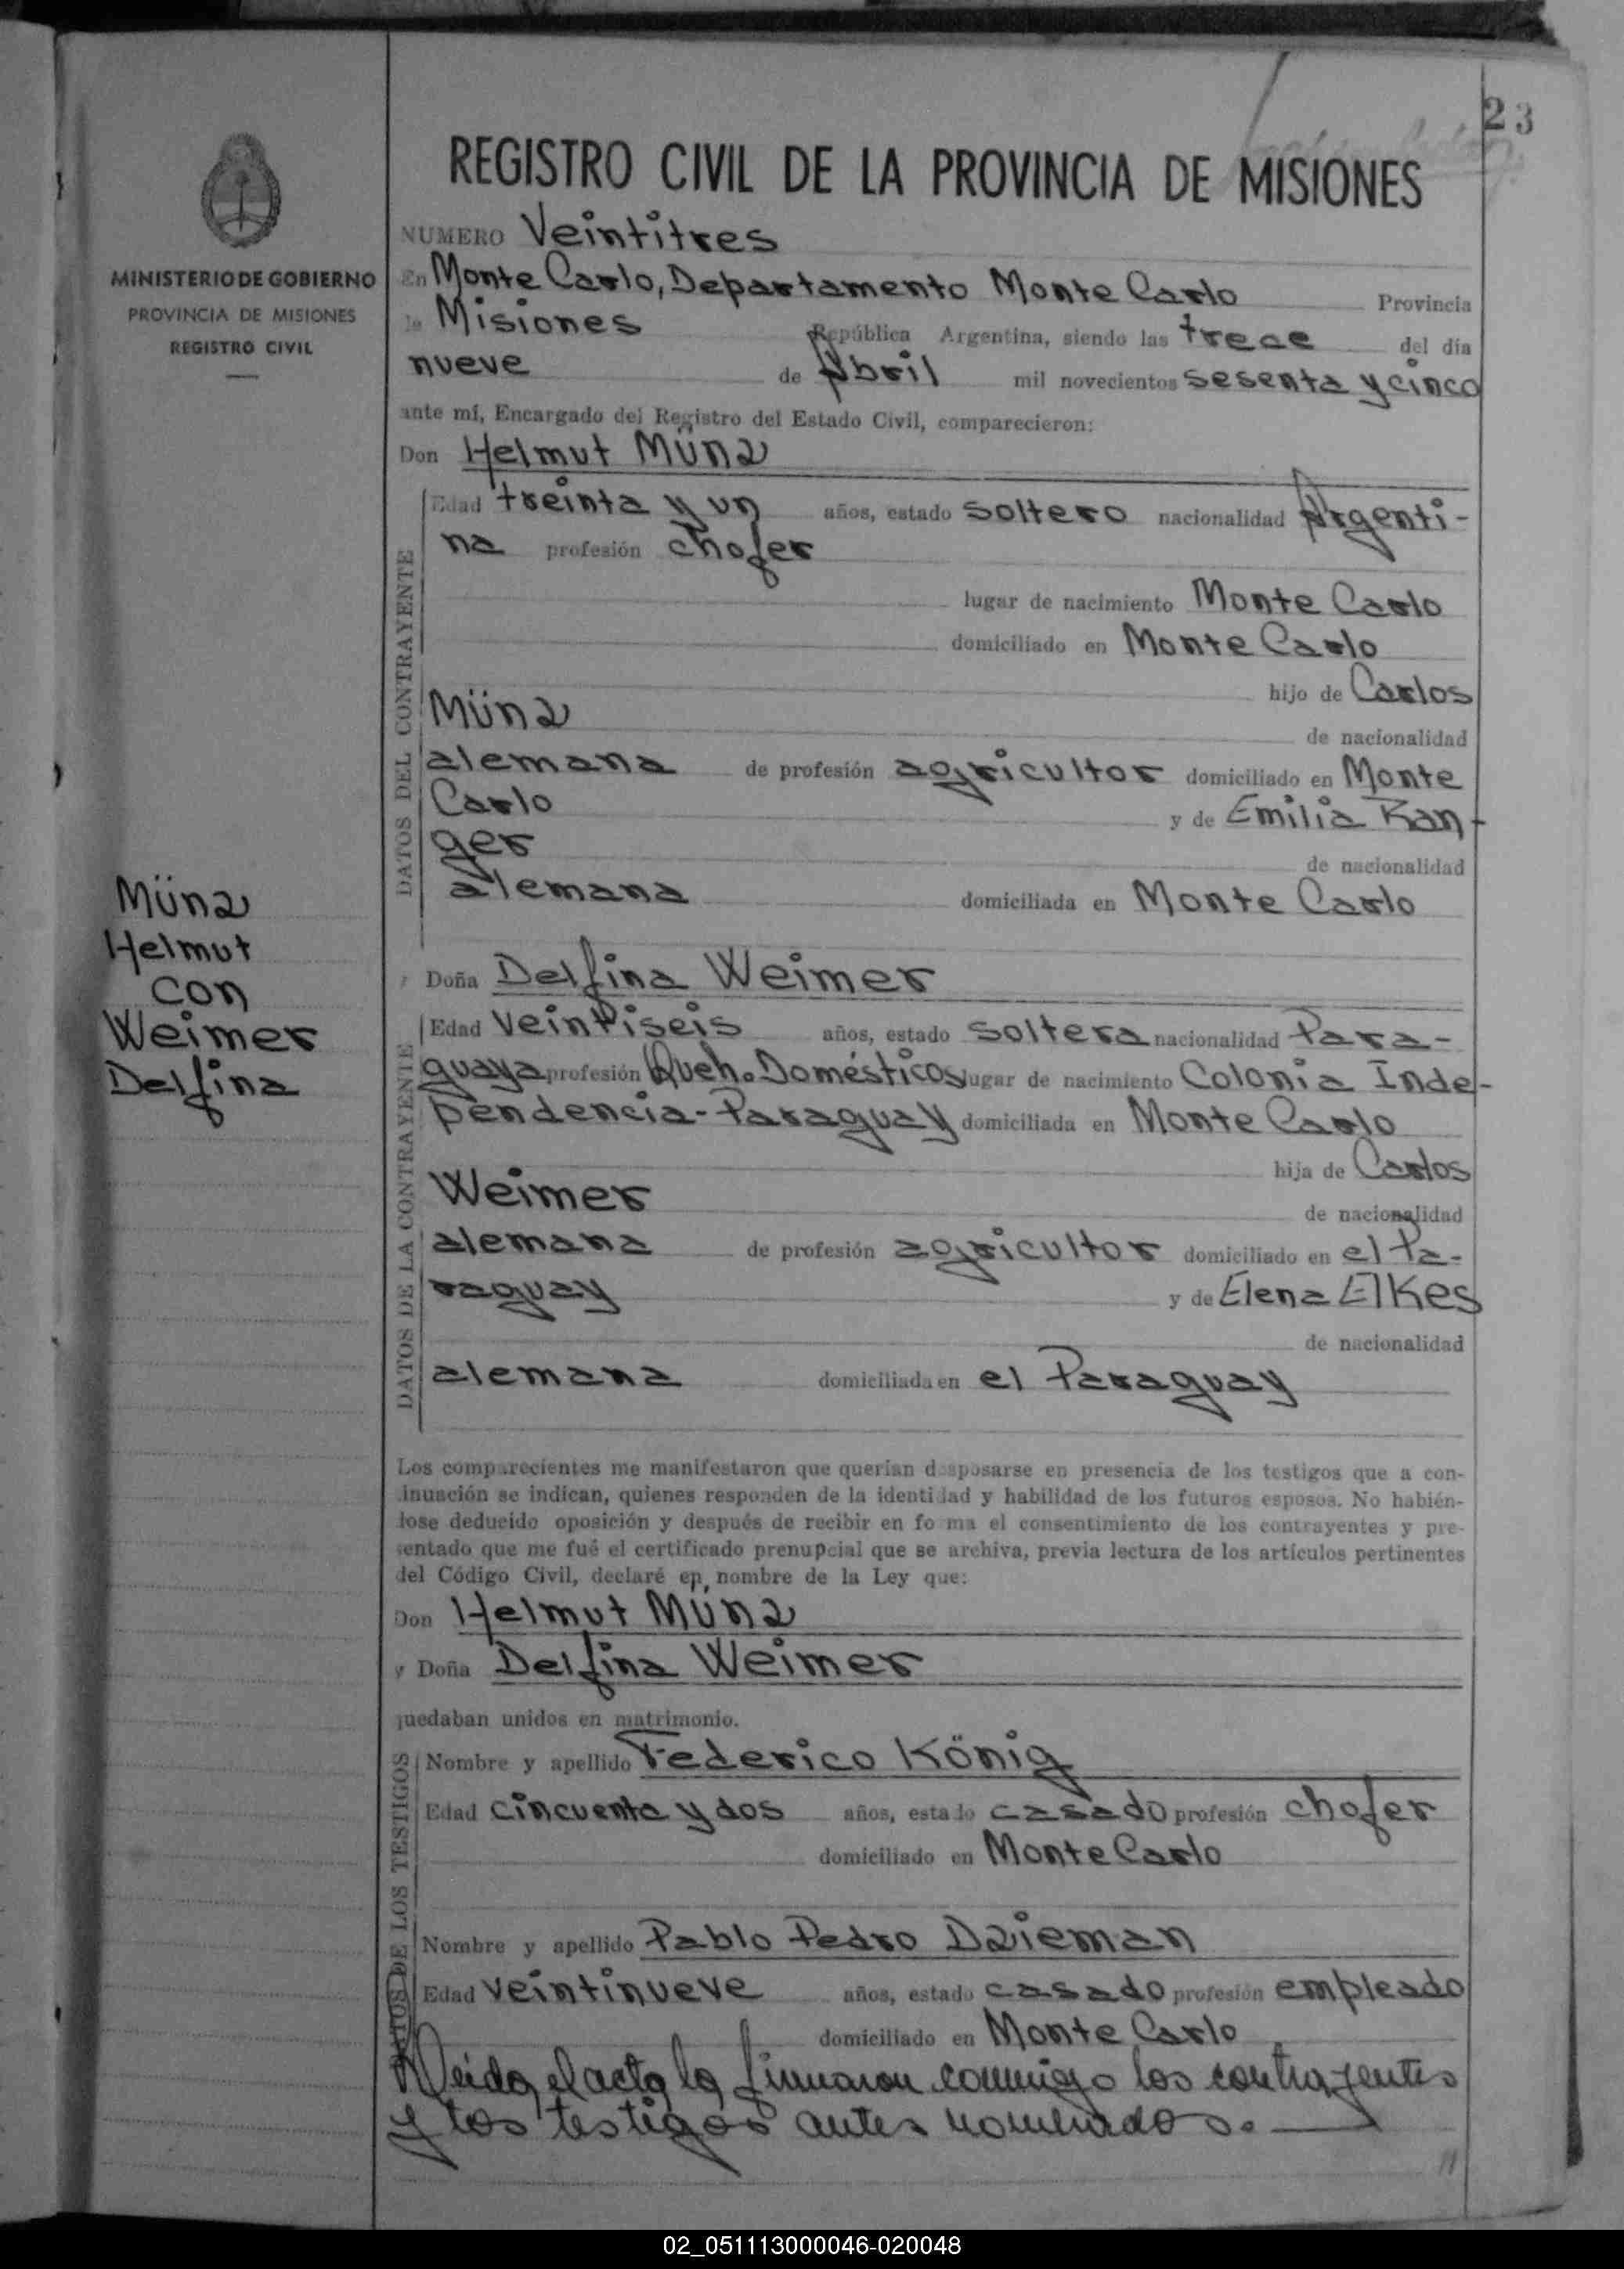 23
REGISTRO CIVIL DE LA PROVINCIA DE MISIONES
MINISTERIO DE GOBIERNO
PROVINCIA DE MISIONES
REGISTRO CIVIL
NUMERO Veintitres
En Monte Carlo, Departamento Monte Carlo Provincia
de Misiones República Argentina, siendo las trece del día
nueve de Abril mil novecientos sesenta y cinco
ante mí, Encargado del Registro del Estado Civil, comparecieron:
Don Helmut Münz
DATOS DEL CONTRAYENTE
Edad treinta y un años, estado soltero nacionalidad Argenti-
na profesión chofer
lugar de nacimiento Monte Carlo
domiciliado en Monte Carlo
hijo de Carlos
Münz
de nacionalidad
alemana de profesión agricultor domiciliado en Monte
Carlo y de Emilia Ran-
ger
de nacionalidad
alemana domiciliada en Monte Carlo
Münz
Helmut
con
Weimer
Delfina
y Doña Delfina Weimer
DATOS DE LA CONTRAYENTE
Edad veintiseis años, estado soltera nacionalidad Para-
guaya profesión Queh. Domésticos lugar de nacimiento Colonia Inde-
pendencia-Paraguay domiciliada en Monte Carlo
hija de Carlos
Weimer
de nacionalidad
alemana de profesión agricultor domiciliado en el Pa-
raguay y de Elena Elkes
de nacionalidad
alemana domiciliada en el Paraguay
Los comparecientes me manifestaron que querían desposarse en presencia de los testigos que a con-
tinuación se indican, quienes responden de la identidad y habilidad de los futuros esposos. No habién-
dose deducido oposición y después de recibir en forma el consentimiento de los contrayentes y pre-
sentado que me fué el certificado prenupcial que se archiva, previa lectura de los artículos pertinentes
del Código Civil, declaré en nombre de la Ley que:
Don Helmut Münz
y Doña Delfina Weimer
quedaban unidos en matrimonio.
DATOS DE LOS TESTIGOS
Nombre y apellido Federico König
Edad cincuenta y dos años, estado casado profesión chofer
domiciliado en Monte Carlo
Nombre y apellido Pablo Pedro Dzieman
Edad veintinueve años, estado casado profesión empleado
domiciliado en Monte Carlo
Leida el acta la firmaron conmigo los contrayentes
y los testigos antes nombrados.
02_051113000046-020048